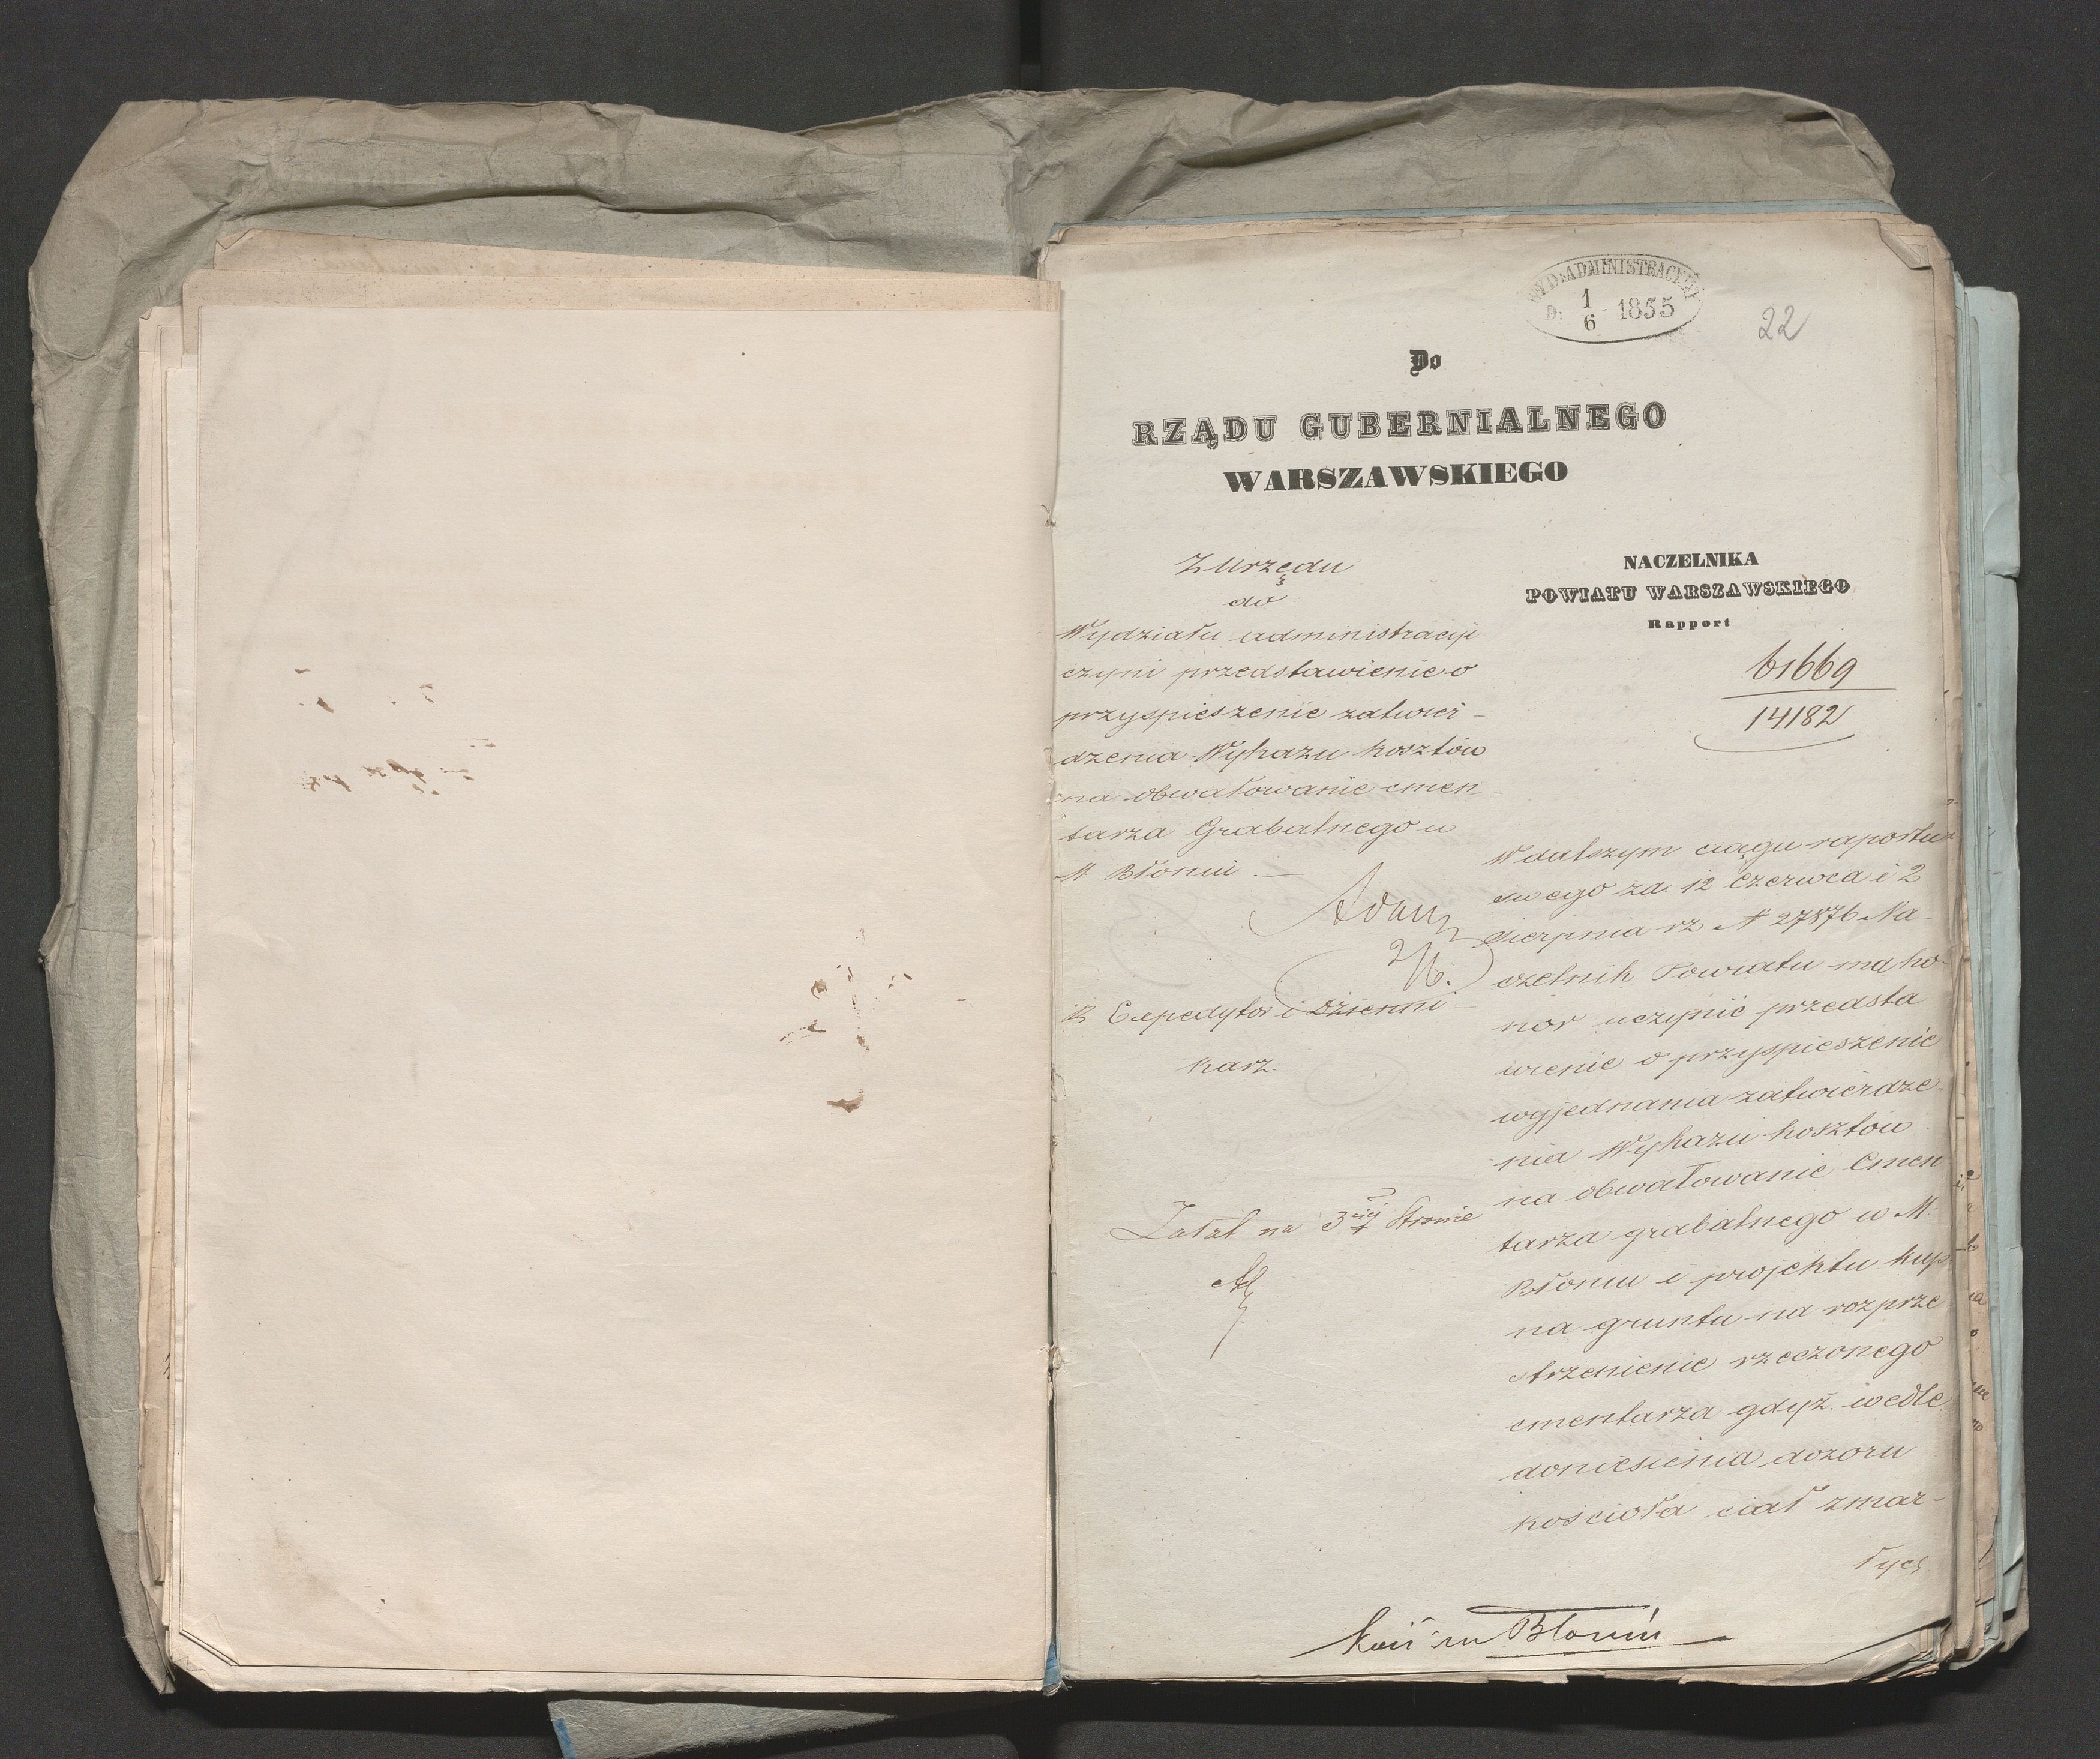 WYD: ADMINISTRACYJNY
D: 1/6 1855
22
Do
RZĄDU GUBERNIALNEGO
WARSZAWSKIEGO
NACZELNIKA
POWIATU WARSZAWSKIEGO
Rapport
61669
14182
Z Urzędu
do
Wydziału administracyi
czyni przedstawienie o
przyspieszenie zatwier-
dzenia Wykazu kosztów
na obwałowanie cmen-
tarza Grabalnego w
M Błoniu. —
2/6.
Expedytor i Dzienni-
karz.
na 3ciej Stronie
W dalszym ciągu raportu
swego za: 12 Czerwca i 2
Sierpnia rz N 27876 Na-
czelnik Powiatu ma ho-
nor uczynić przedsta
wienie o przyspieszenie
wyjednania zatwierdze-
nia Wykazu kosztów
na obwałowanie Cmen
tarza grabalnego w M:
Błoniu i projektu kup-
na gruntu na rozprze
strzenienie rzeczonego
cmentarza gdyż wedle
doniesienia dozoru
kościoła ciał zmar-
łych
Kość: w Błoniu